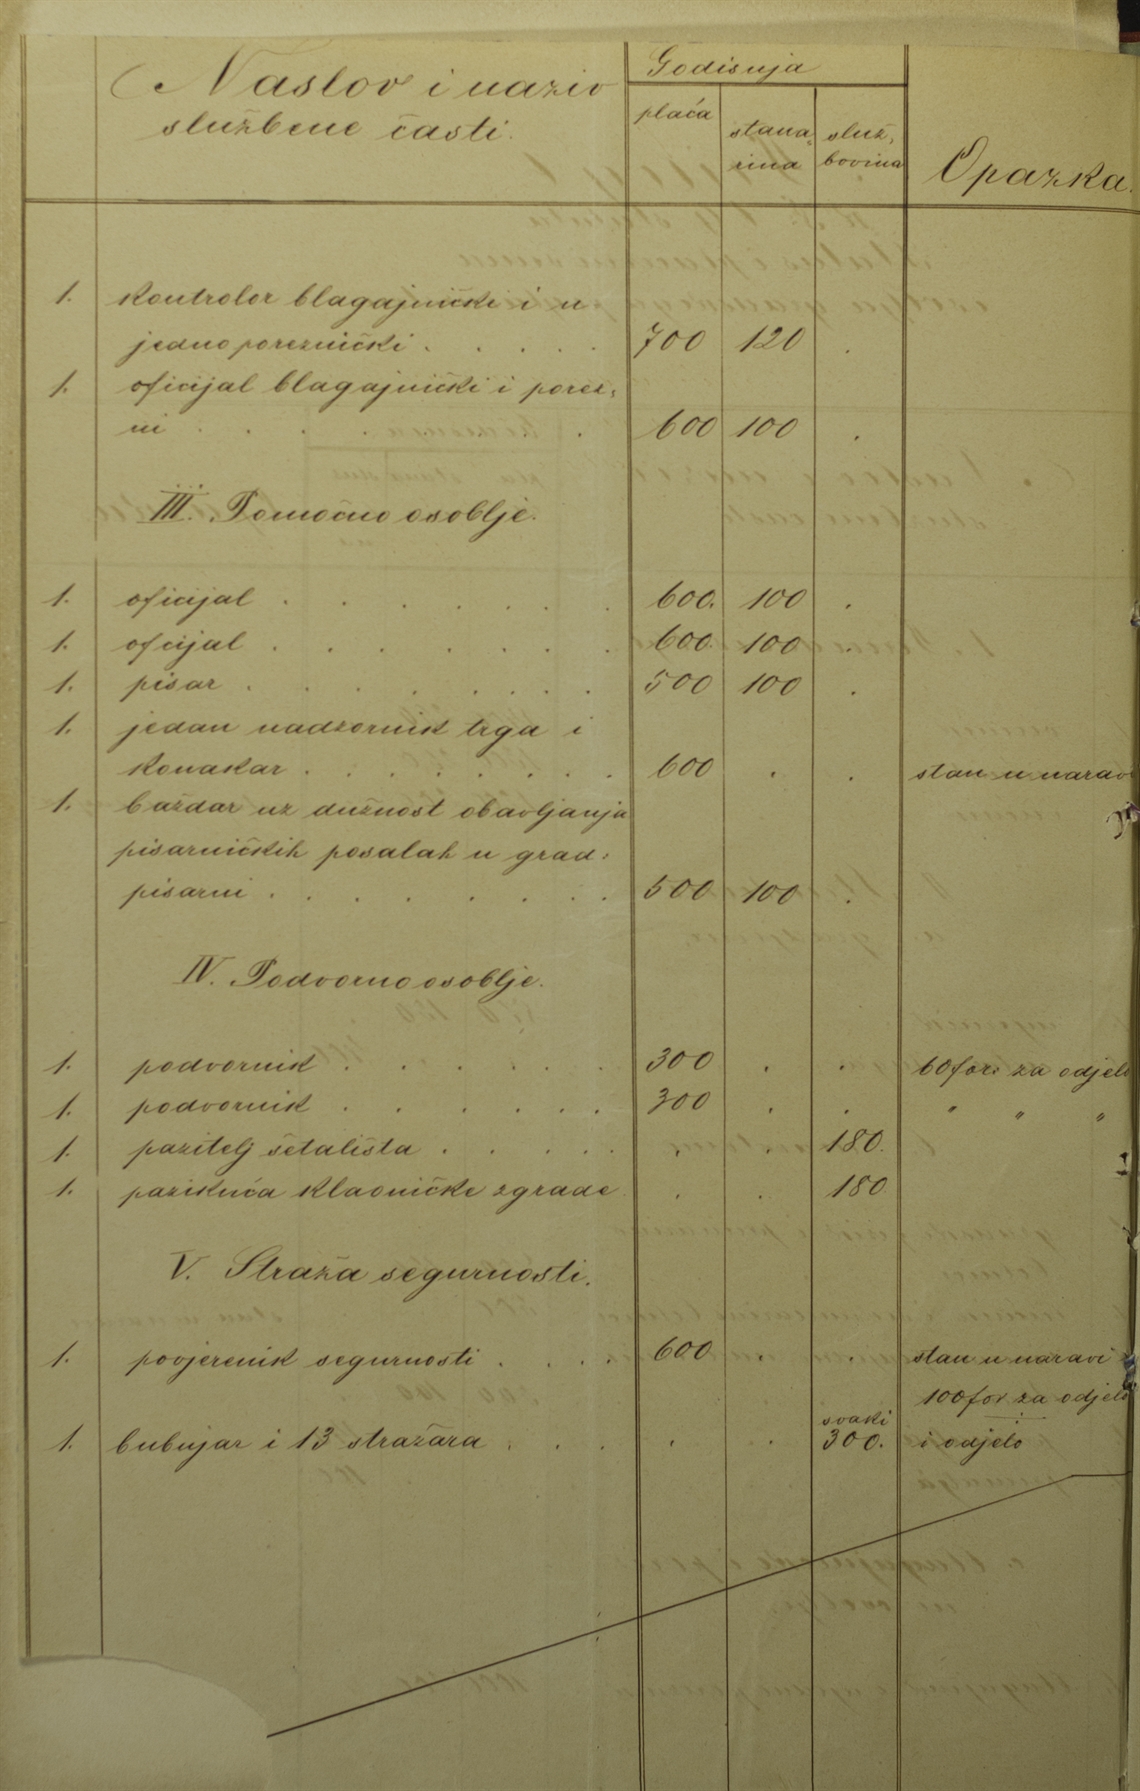 Naslov i naziv
službene časti.
Godisnja
plaća
stana=
rina
služ=
bovina
Opazka.
1. kontrolor blagajnički i u
jedno poreznički . . . . . 700 120 .
1. oficijal blagajnički i porez=
ni . . . . . 600 100 .
III. Pomoćno osoblje.
1. oficijal . . . . . . . 600. 100 .
1. oficijal . . . . . . . 600. 100 .
1. pisar . . . . . . . . 500 100 .
1. jedan nadzornik trga i
konakar . . . . . . . 600 . . stan u naravi
1. baždar uz dužnost obavljanja
pisarničkih posalah u grad:
pisarni . . . . . . . . 500 100 .
IV. Podvorno osoblje.
1. podvornik . . . . . . 300 . . 60 for. za odjelo
1. podvornik . . . . . . 300 . . " " "
1. pazitelj šetališta . . . . . . . 180.
1. pazikuća klaoničke zgrade . . 180
V. Straža segurnosti.
1. povjerenik segurnosti . . . . 600 . . stan u naravi
100 for za odjelo
svaki
1. bubnjar i 13 stražara . . . . . 300. i odjelo